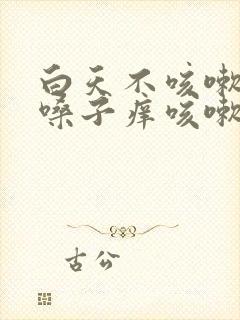 白天不咳嗽
嗓子痒咳嗽
古公